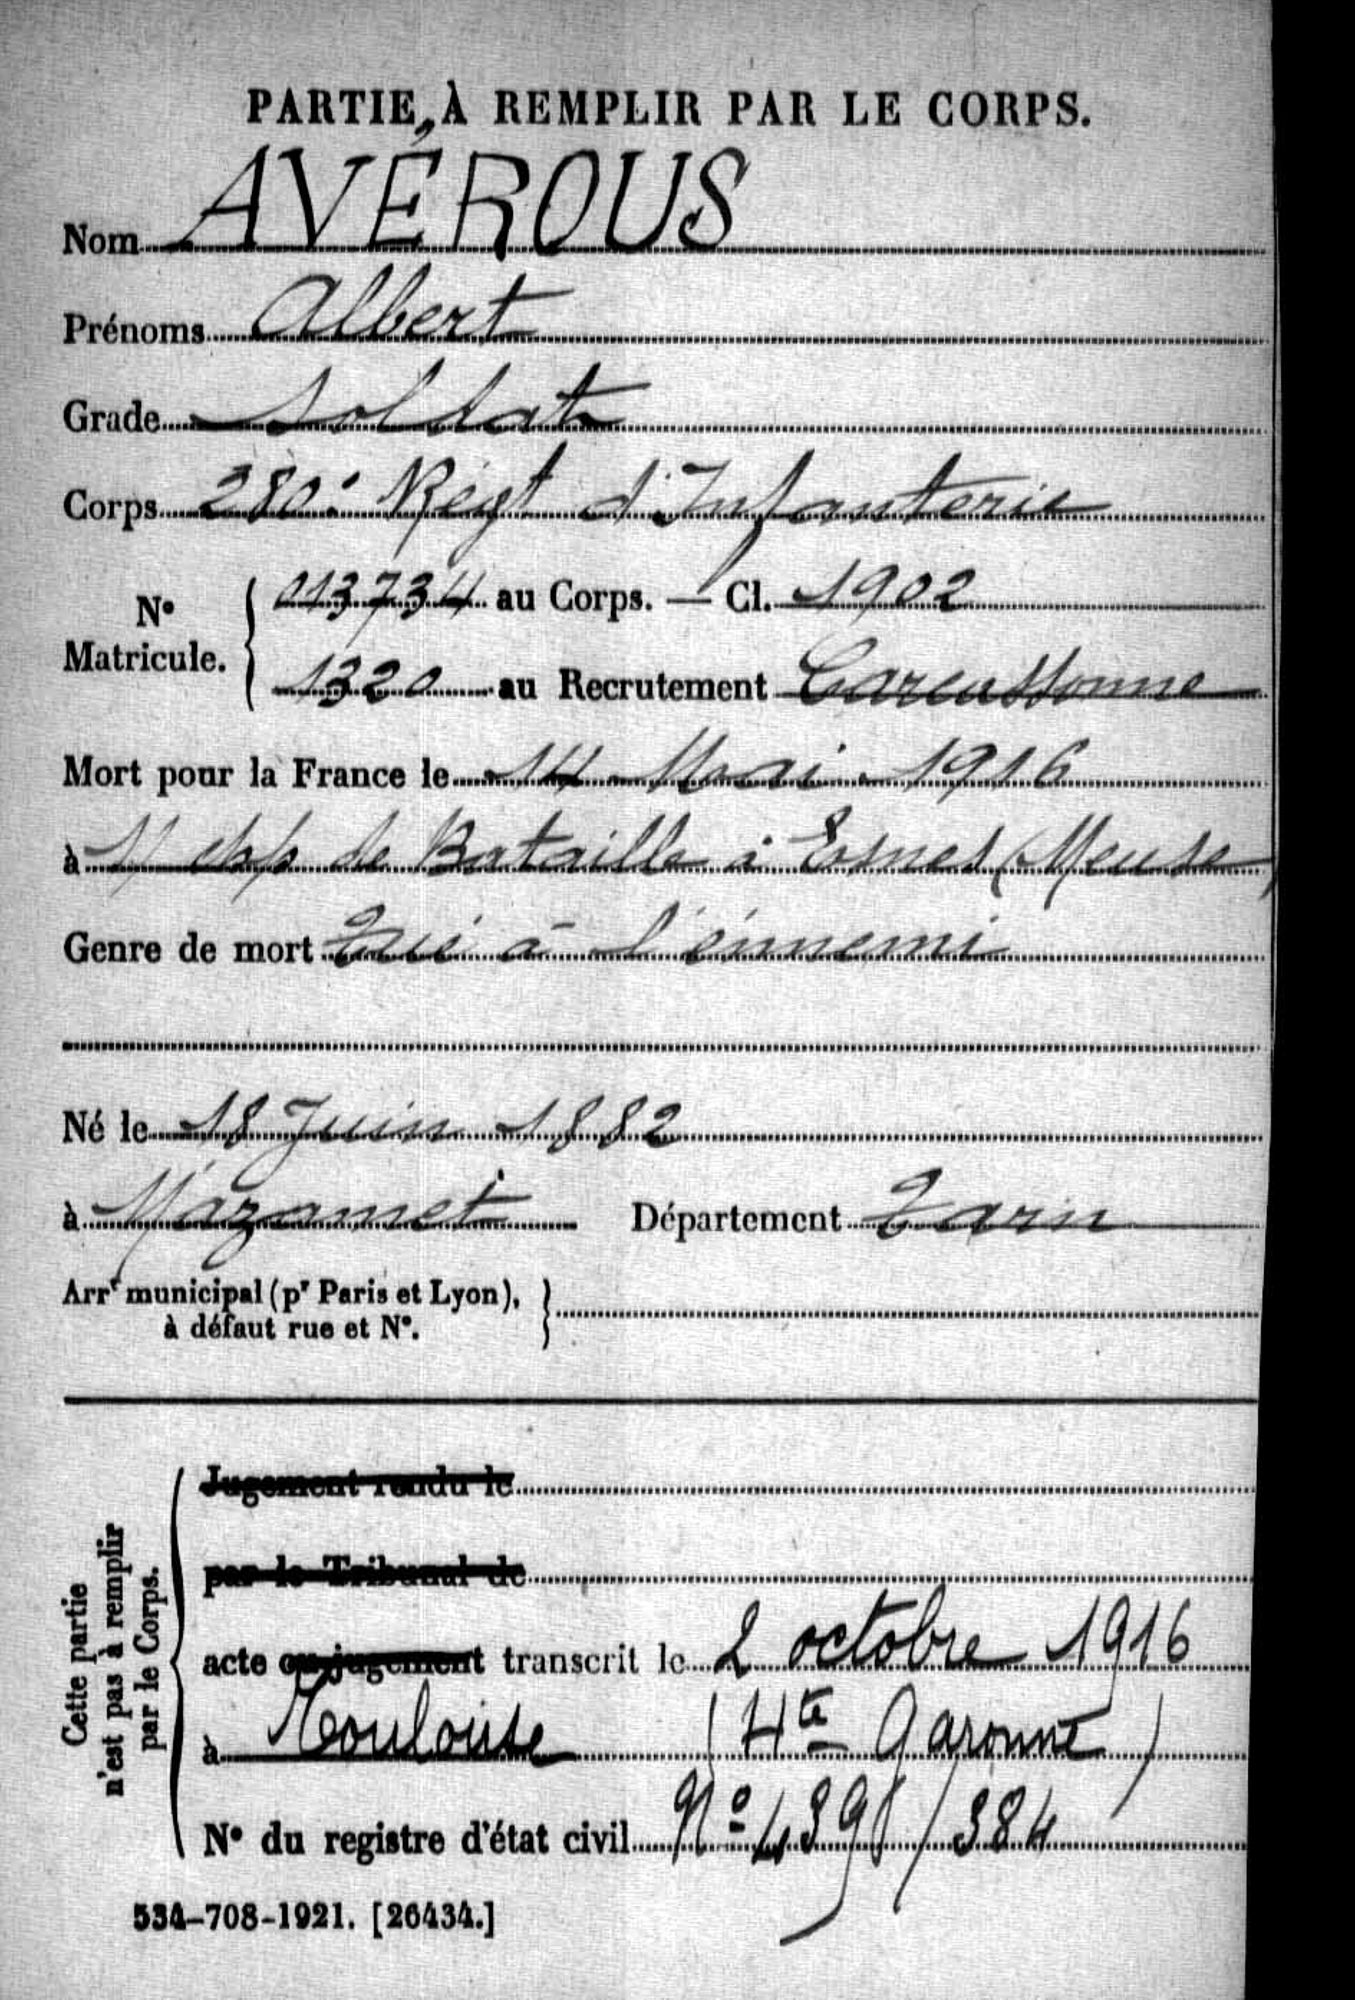 PARTIE À REMPLIR PAR LE CORPS.
Nom AVÉROUS
Prénoms Albert
Grade Soldat
Corps 280e Régt d'Infanterie
N° Matricule. { 013734 au Corps. — Cl. 1902
1320 au Recrutement Carcassonne
Mort pour la France le 14 Mai 1916
à de Bataille à Esnes (Meuse)
Genre de mort Tué à l'énnemi
Né le 18 Juin 1882
à Mazamet Département Tarn
Arrt municipal (pr Paris et Lyon), à défaut rue et N°. }
Cette partie n'est pas à remplir par le Corps.
Jugement rendu le
par le Tribunal de
acte ou jugement transcrit le 2 octobre 1916
à Toulouse (Hte Garonne)
N° du registre d'état civil N° /384
534-708-1921. [26434.]